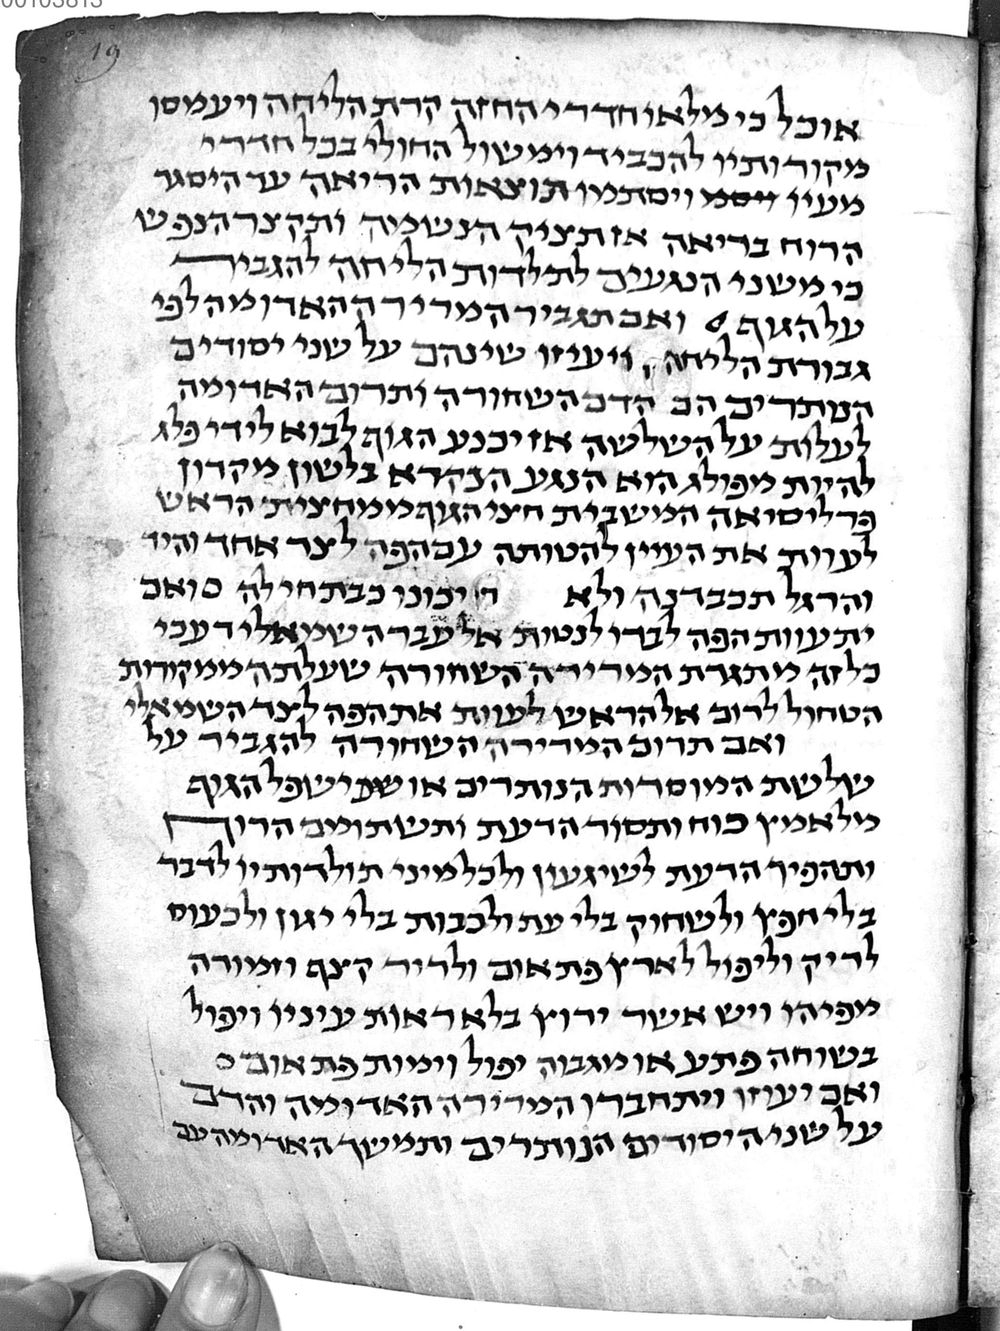 00103813
19
אוכל כי מלאו חדרי החזה קרת הליחה ויעמסו
מקורותיו להכביד וימשול החולי בכל חדרי
מעיו ויסתמו תוצאות הריאה עד היסגר
הרוח בריאה אז תציק הנשמה ותקצר הנפש
כי משני הנגעים לתלדות הליחה להגביר
על הגוף ואם תגביר המרירה האדומה לפי
גבורת הליחה ויעיזו שינהם על שני יסודים
הנותרים הם הדם השחורה ותרום האדומה
לעלות על השלשה אז יכנע הגוף לבוא לידי פלג
להיות מפולג הוא הנגע הנקרא בלשון מקדון
פרליסיאה המשבית חצי הגוף ממחצית הראש
לעוות את העין להטותה עם הפה לצד אחד והיד
והרגל תכבדנה ולא יכונו כבתחילה ואם
יתעוות הפה לבדו לנטות אל עבר השמאלי דע כי
כל זה מתגרת המרירה השחורה שעלתה ממקורות
הטחול לרום אל הראש לעוות את הפה לצד השמאלי
ואם תרום המרירה השחורה להגביר על
שלשת המוסדות הנותרים או ישפל הגוף
מלאמץ כוח ותסור הדעת ותשתומם הרוח
ותהפיך הדעת לשיגעון ולכל מיני תולדותיו לדבר
בלי חפץ ולשחוק בלי עת ולבכות בלי יגון ולכעוס
לריק וליפול לארץ פתאום ולריר קצף וזמורה
מפיהו ויש אשר ירוץ בלא ראות עיניו ויפול
בשוחה פתע או מגבוה יפול וימות פתאום
ואם יעוזו ויתחברו המרירה האדומה והדם
על שני היסודים הנותרים ותמשך האדומה עם